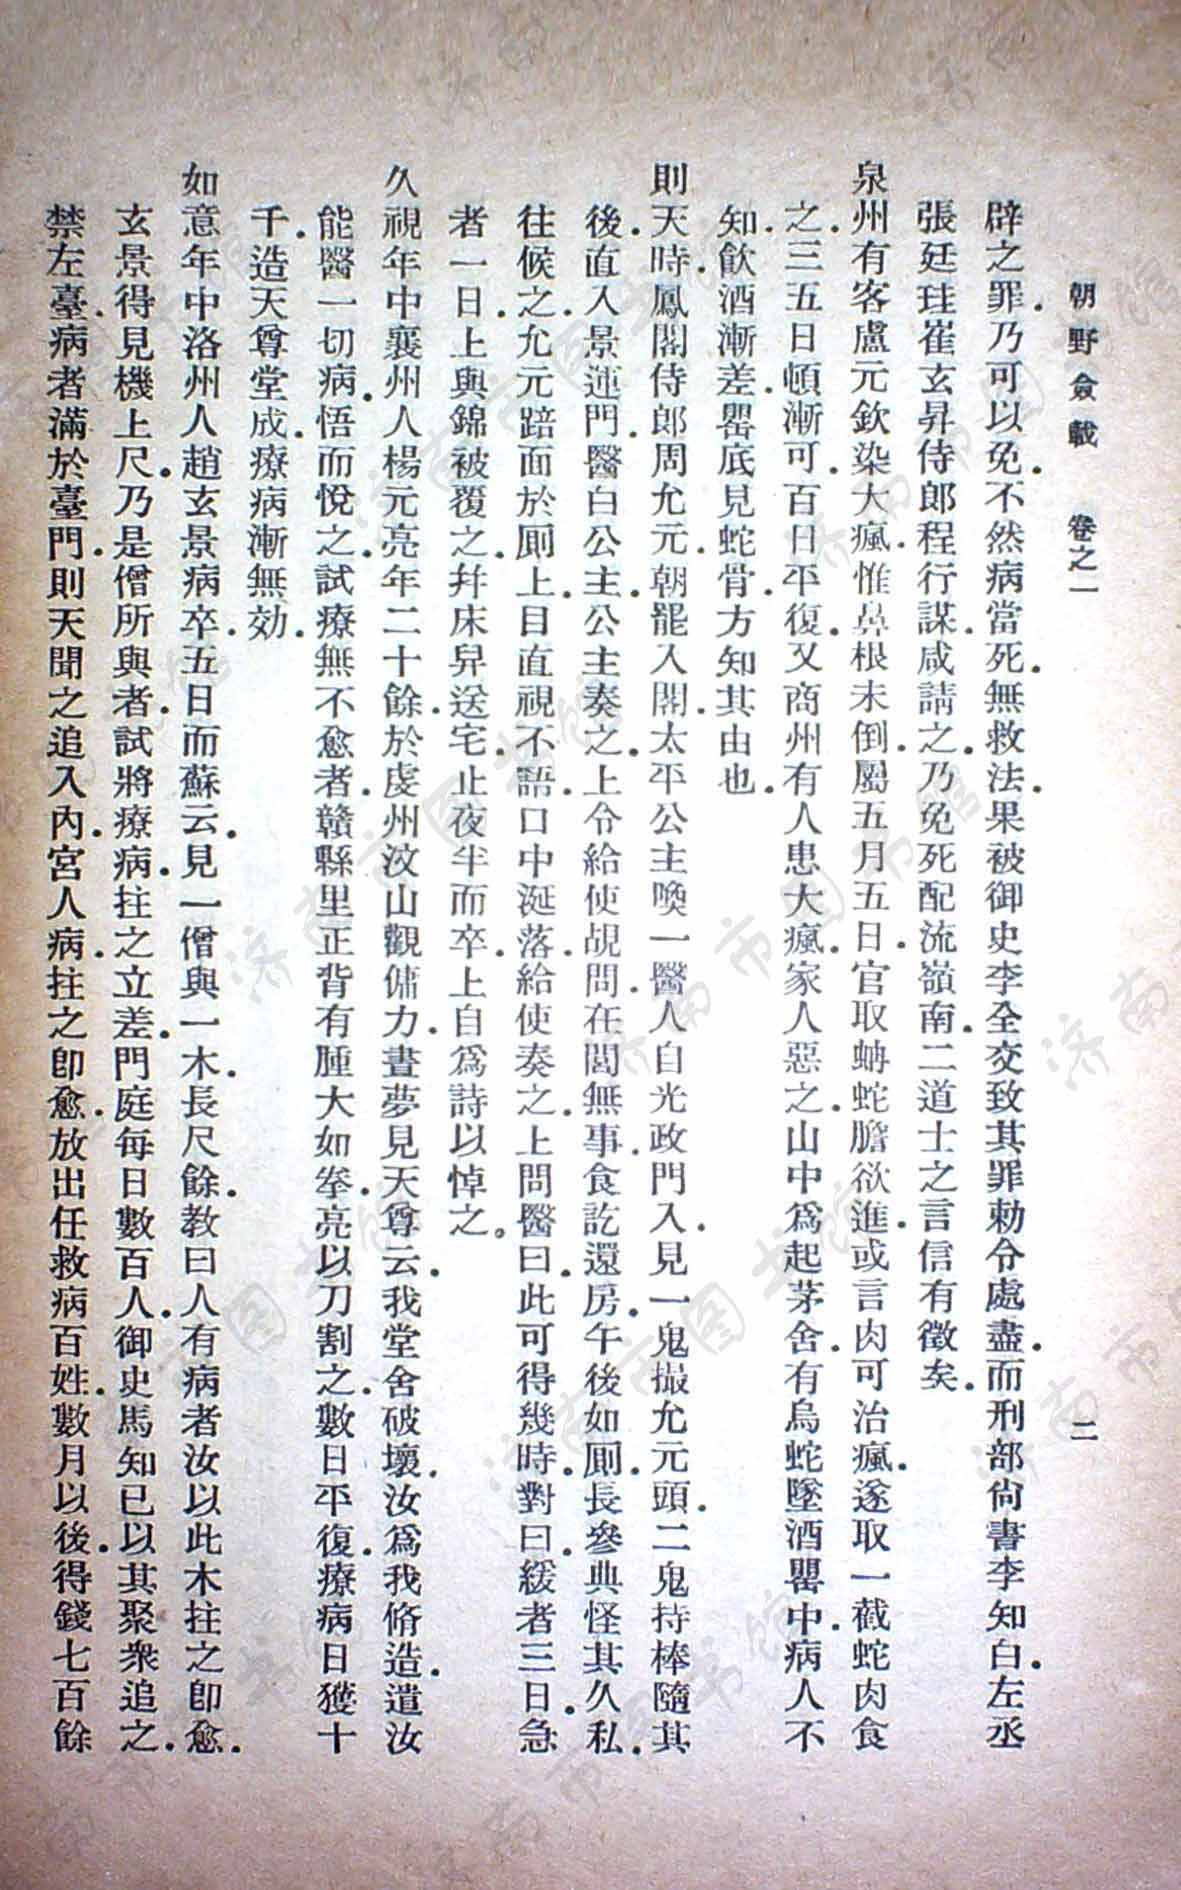 朝野僉載　卷之一　二
辟之罪．乃可以免．不然病當死．無救法．果被御史李全交致其罪勅令處盡．而刑部尙書李知白．左丞
張廷珪崔玄昇侍郎程行謀．咸請之．乃免死配流嶺南．二道士之言信有徵矣．
泉州有客盧元欽染大瘋．惟鼻根未倒．屬五月五日．官取蚺蛇膽欲進．或言肉可治瘋．遂取一截蛇肉食
之．三五日頓漸可．百日平復．又商州有人患大瘋．家人惡之．山中爲起茅舍．有烏蛇墜酒罌中．病人不
知．飮酒漸差．罌底見蛇骨．方知其由也．
則天時．鳳閣侍郎周允元．朝罷入閣．太平公主喚一醫人自光政門入．見一鬼撮允元頭．二鬼持棒隨其
後．直入景運門．醫白公主．公主奏之．上令給使覘問．在閣無事．食訖還房．午後如厠．長參典怪其久私．
往候之．允元踣面於厠上．目直視不語．口中涎落．給使奏之．上問醫曰．此可得幾時．對曰．緩者三日．急
者一日．上與錦被覆之．幷床舁送宅．止夜半而卒．上自爲詩以悼之。
久視年中襄州人楊元亮．年二十餘．於虔州汶山觀傭力．晝夢見天尊云．我堂舍破壞．汝爲我脩造．遣汝
能醫一切病．悟而悅之．試療無不愈者．贛縣里正背有腫大如拳．亮以刀割之．數日平復．療病日獲十
千．造天尊堂成．療病漸無効．
如意年中洛州人趙玄景病卒．五日而蘇云．見一僧與一木．長尺餘．教曰人有病者汝以此木拄之卽愈．
玄景得見機上尺．乃是僧所與者．試將療病．拄之立差．門庭每日數百人．御史馬知已以其聚衆追之．
禁左臺．病者滿於臺門．則天聞之追入內．宮人病．拄之卽愈．放出任救病百姓．數月以後．得錢七百餘
济南市图书馆